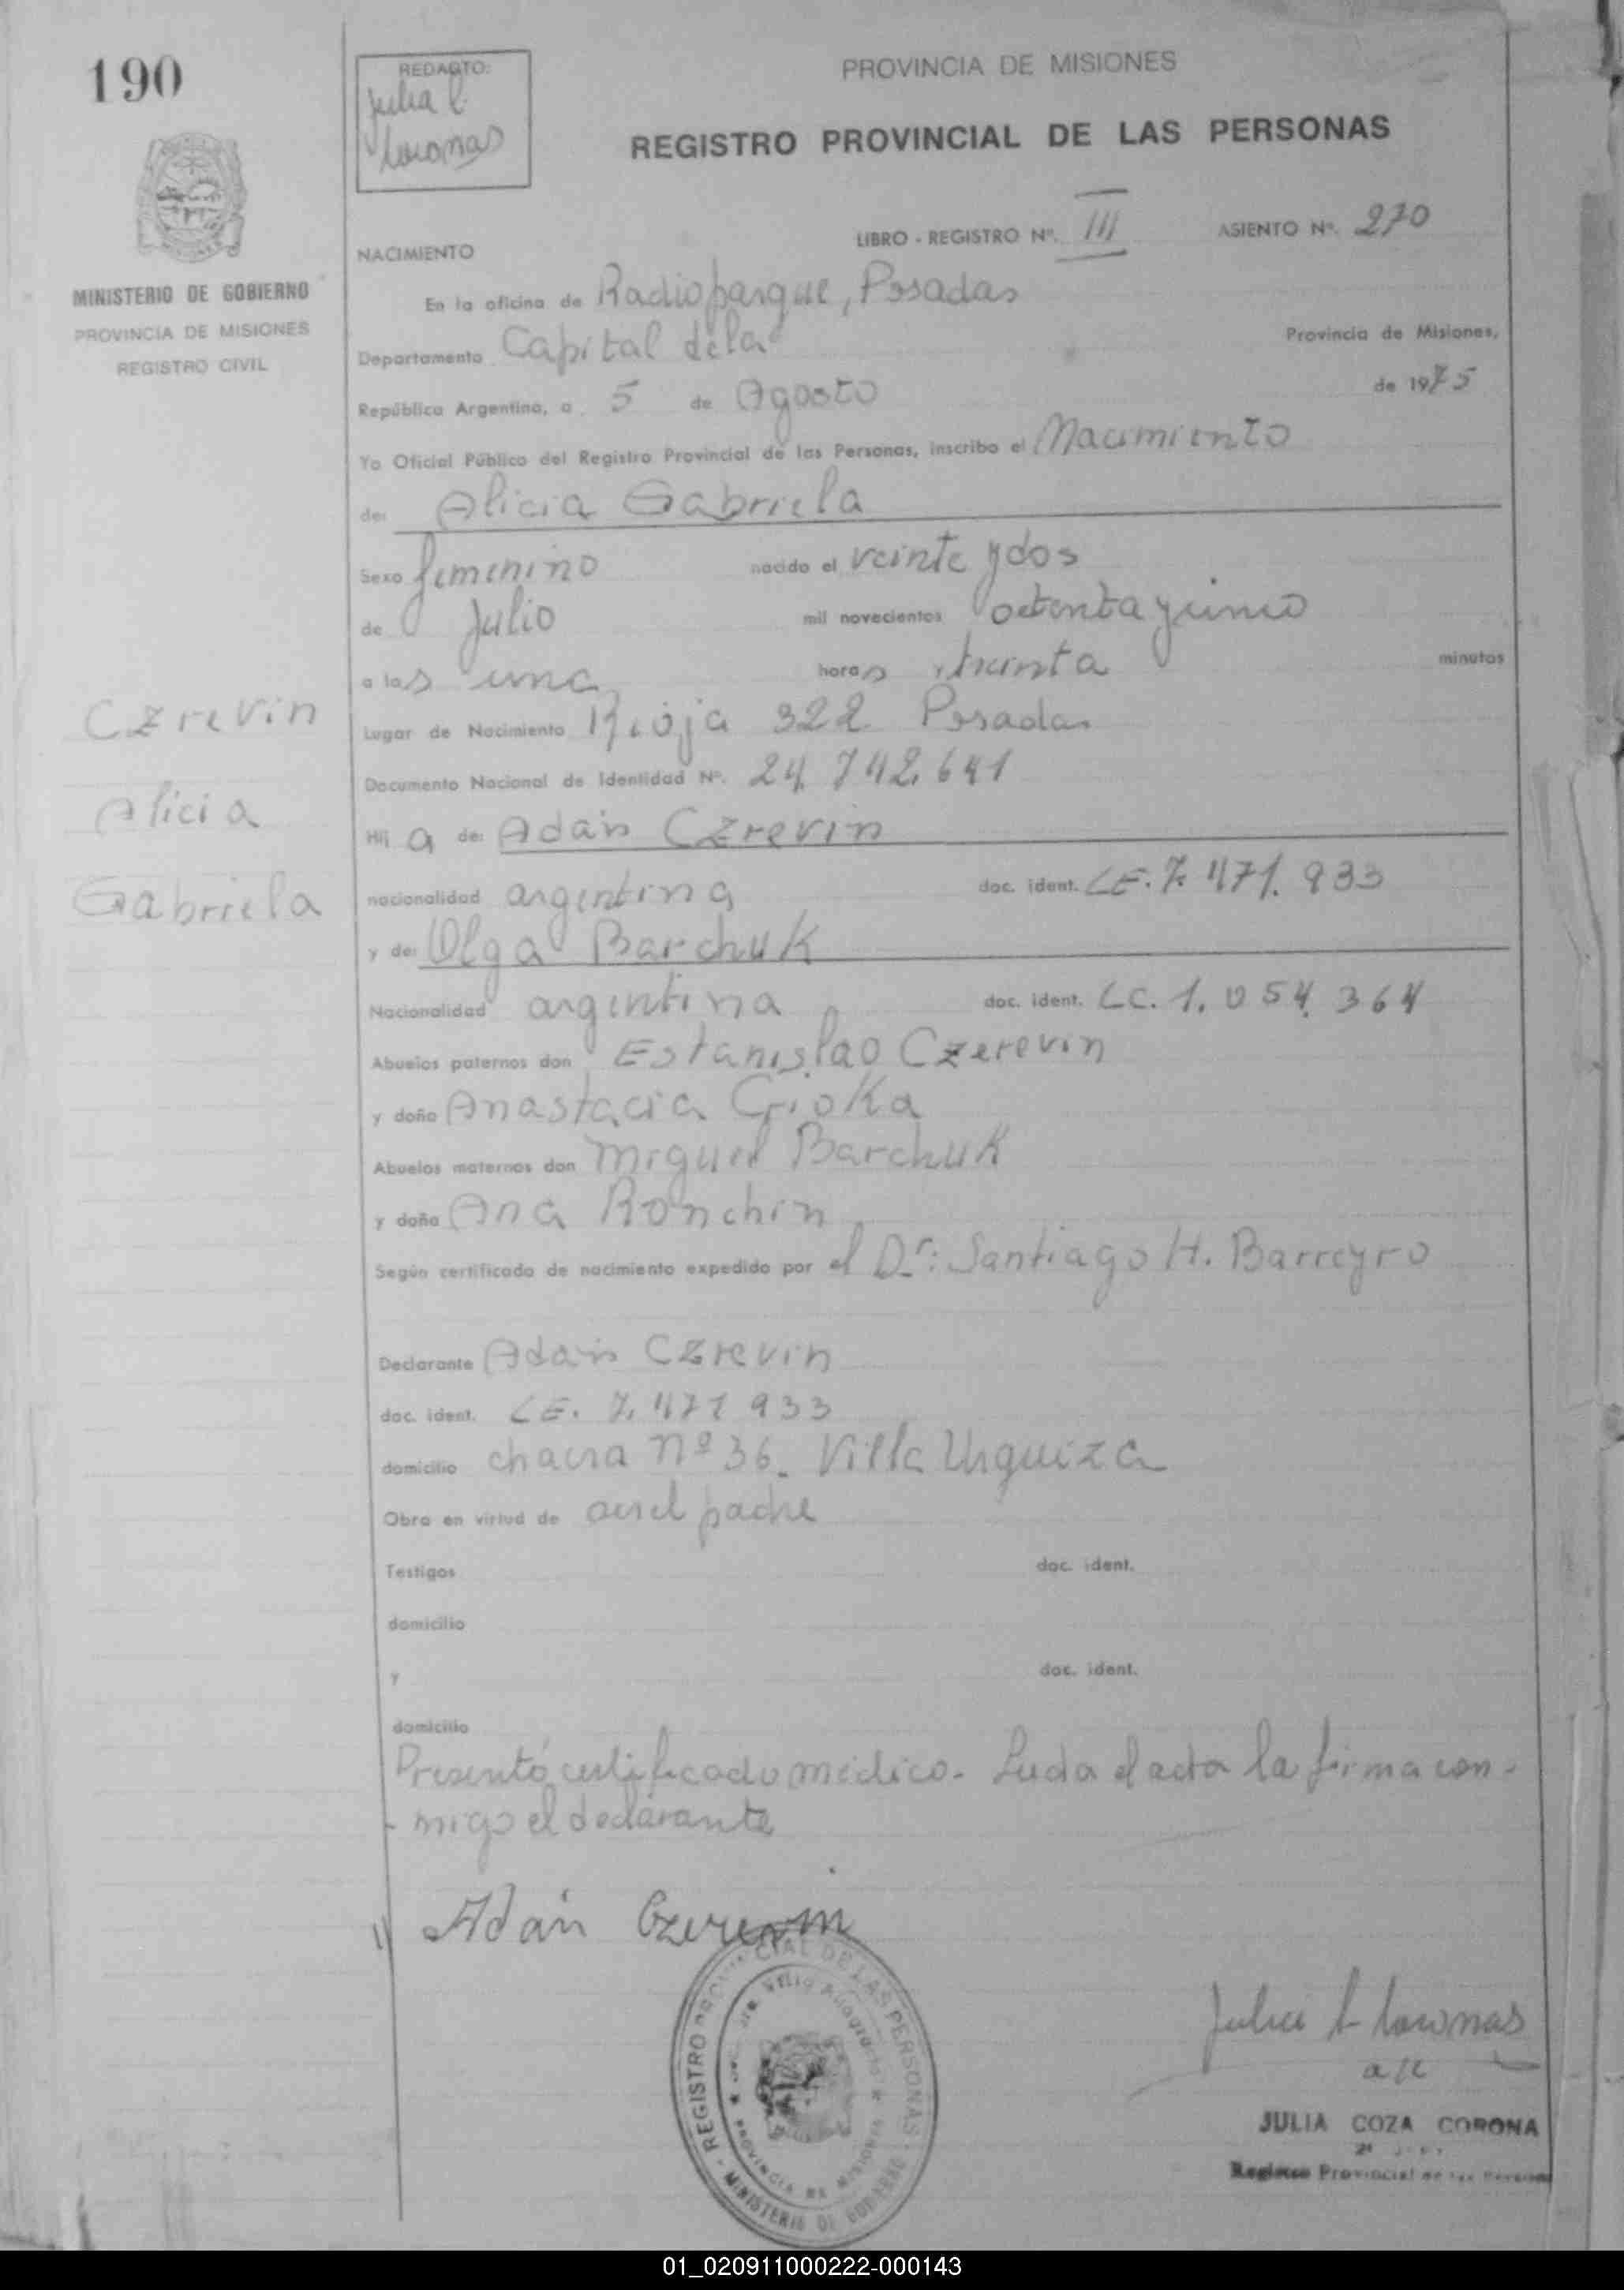 190
REDACTO:
Julia C.
Coronas
PROVINCIA DE MISIONES
REGISTRO PROVINCIAL DE LAS PERSONAS
MINISTERIO DE GOBIERNO
PROVINCIA DE MISIONES
REGISTRO CIVIL
LIBRO - REGISTRO Nº. III ASIENTO Nº. 270
NACIMIENTO
En la oficina de Radioparque, Posadas
Departamento Capital de la Provincia de Misiones,
República Argentina, a 5 de Agosto de 1975
Yo Oficial Público del Registro Provincial de las Personas, inscribo el Nacimiento
de: Alicia Gabriela
Sexo femenino nacido el veinte y dos
de Julio mil novecientos
a las una horas treinta minutos
Lugar de Nacimiento Rioja 322 Posadas
Documento Nacional de Identidad Nº. 24.742.641
Czrevin
Alicia
Gabriela
Hij a de: Adán Czrevin
nacionalidad argentina doc. ident. LE. 7.471.933
y de: Olga Barchuk
Nacionalidad argentina doc. ident. LC. 1.054.364
Abuelos paternos don Estanislao Czerevin
y doña Anastacia Gioka
Abuelos maternos don Miguel Barchuk
y doña Ana Ronchin
Según certificado de nacimiento expedido por el Dr: Santiago H. Barreyro
Declarante Adán Czrevin
doc. ident. LE. 7.471 933
domicilio chacra nº 36. Villa Urquiza
Obra en virtud de ser el padre
Testigos doc. ident.
domicilio
y doc. ident.
domicilio
Presentó certificado médico. Leida el acta la firma con-
-migo el declarante
Adán Czerevin
REGISTRO PROVINCIAL DE LAS PERSONAS - MINISTERIO DE GOBIERNO
PROVINCIA DE MISIONES
Julia Coronas
JULIA COZA CORONA
Registro Provincial de las Personas
01_020911000222-000143